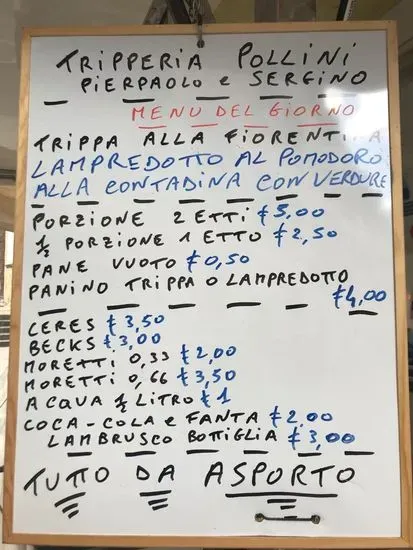 TRIPPERIA POLLINI
PIERPAOLO e SERGINO
MENU DEL GIORNO
TRIPPA ALLA FIORENTINA
LAMPREDOTTO AL POMODORO
ALLA CONTADINA CON VERDURE
PORZIONE 2 ETTI € 5,00
½ PORZIONE 1 ETTO € 2,50
PANE VUOTO € 0,50
PANINO TRIPPA O LAMPREDOTTO
€ 4,00
CERES € 3,50
BECKS € 3,00
MORETTI 0,33 € 2,00
MORETTI 0,66 € 3,50
ACQUA ½ LITRO € 1
COCA-COLA e FANTA € 2,00
LAMBRUSCO BOTTIGLIA € 3,00
TUTTO DA ASPORTO